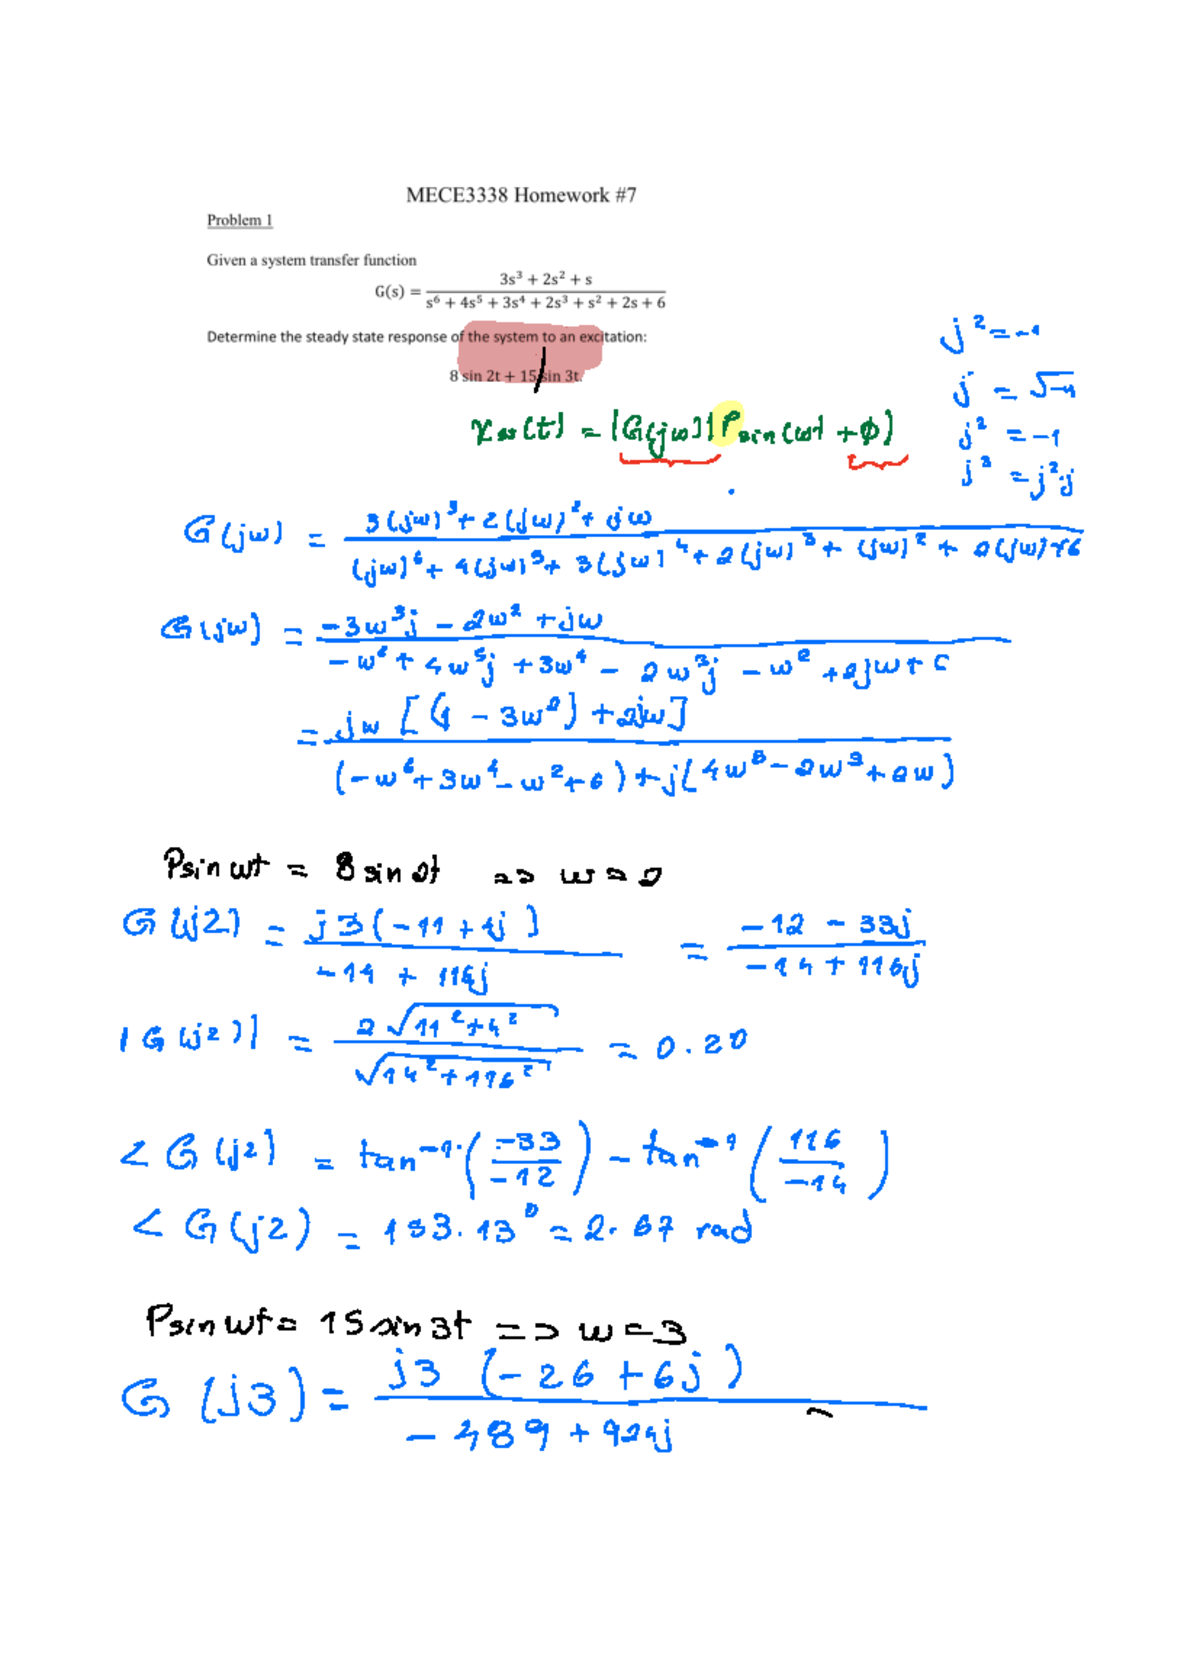 MECE3338 Homework #7
Problem 1
Given a system transfer function
G(s) = (3s³ + 2s² + s) / (s⁶ + 4s⁵ + 3s⁴ + 2s³ + s² + 2s + 6)
Determine the steady state response of the system to an excitation:
8 sin 2t + 15 sin 3t.
j² = -1
j = √-1
j² = -1
j³ = j²·j
x_ss(t) = |G(jω)| P sin(ωt + φ)
G(jω) = (3(jω)³ + 2(jω)² + jω) / ((jω)⁶ + 4(jω)⁵ + 3(jω)⁴ + 2(jω)³ + (jω)² + 2(jω) + 6)
G(jω) = (-3ω³j - 2ω² + jω) / (-ω⁶ + 4ω⁵j + 3ω⁴ - 2ω³j - ω² + 2jω + 6)
= jω [(1 - 3ω²) + 2jω] / ((-ω⁶ + 3ω⁴ - ω² + 6) + j(4ω⁵ - 2ω³ + 2ω))
Psin ωt = 8 sin 2t => ω = 2
G(j2) = j3(-11 + 4j) / (-14 + 116j) = (-12 - 33j) / (-14 + 116j)
|G(j2)| = 2√(11² + 4²) / √(14² + 116²) = 0.20
< G(j2) = tan⁻¹(-33/-12) - tan⁻¹(116/-14)
< G(j2) = 153.13° = 2.67 rad
Psin ωt = 15 sin 3t => ω = 3
G(j3) = j3 (-26 + 6j) / (-489 + 924j)